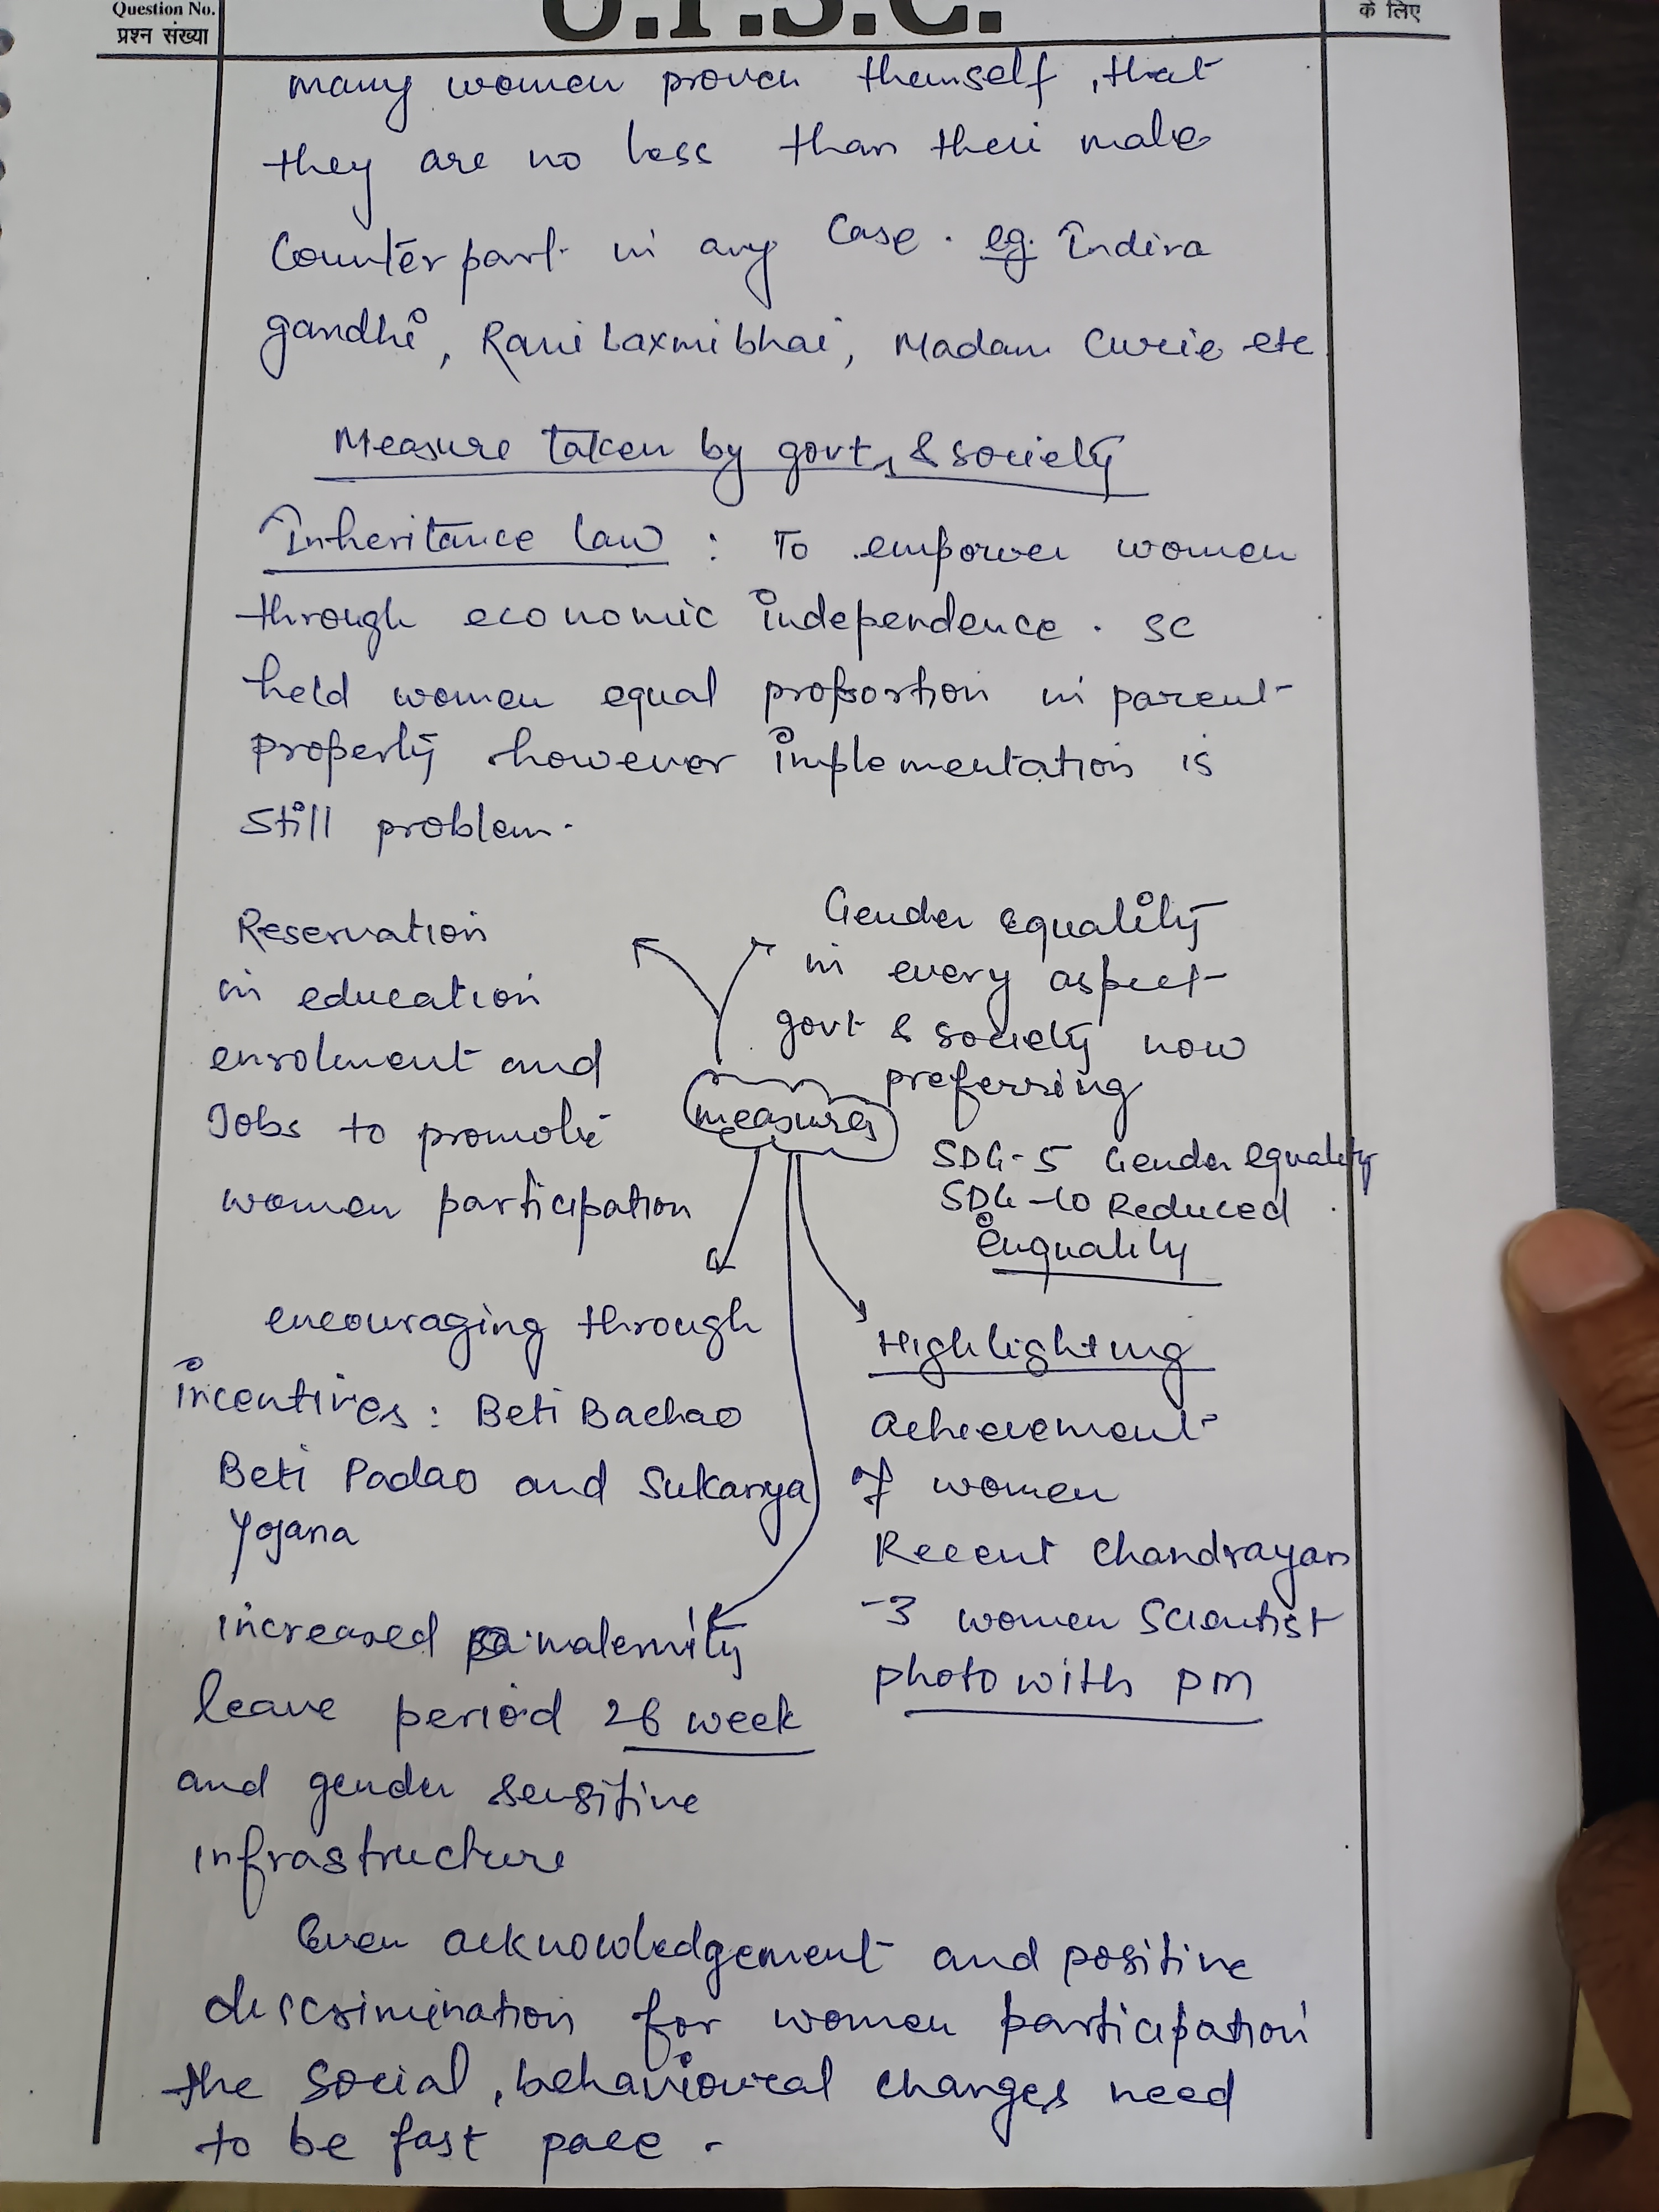 Question No.
प्रश्न संख्या
U.P.S.C.
के लिए
many women proven themself, that
they are no less than their male
Counterpart in any Case. eg. Indira
gandhi, Rani Laxmibhai, Madam Curie etc
Measure taken by govt, & society
Inheritance law : To empower women
through economic independence. SC
held women equal proportion in parent
property however implementation is
still problem.
Reservation
in education
enrolment and
Jobs to promote
women participation
Gender equality
in every aspect
govt & society now
preferring
SDG-5 Gender equality
SDG-10 Reduced
enquality
measures
encouraging through
incentives: Beti Bachao
Beti Padao and Sukanya
Yojana
Highlighting
achievement
of women
Recent Chandrayan
-3 women Scientist
photo with PM
increased maternity
leave period 26 week
and gender sensitive
infrastructure
Even acknowledgement and positive
discrimination for women participation
the social, behavioural changes need
to be fast pace.